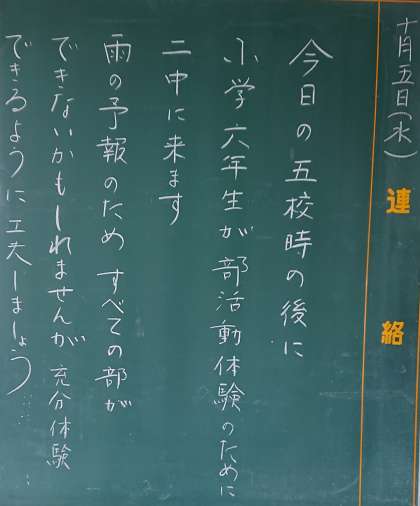 十月五日(水)
連絡
今日の五校時の後に
小学六年生が部活動体験のために
二中に来ます
雨の予報のため すべての部が
できないかもしれませんが 充分体験
できるように工夫しましょう